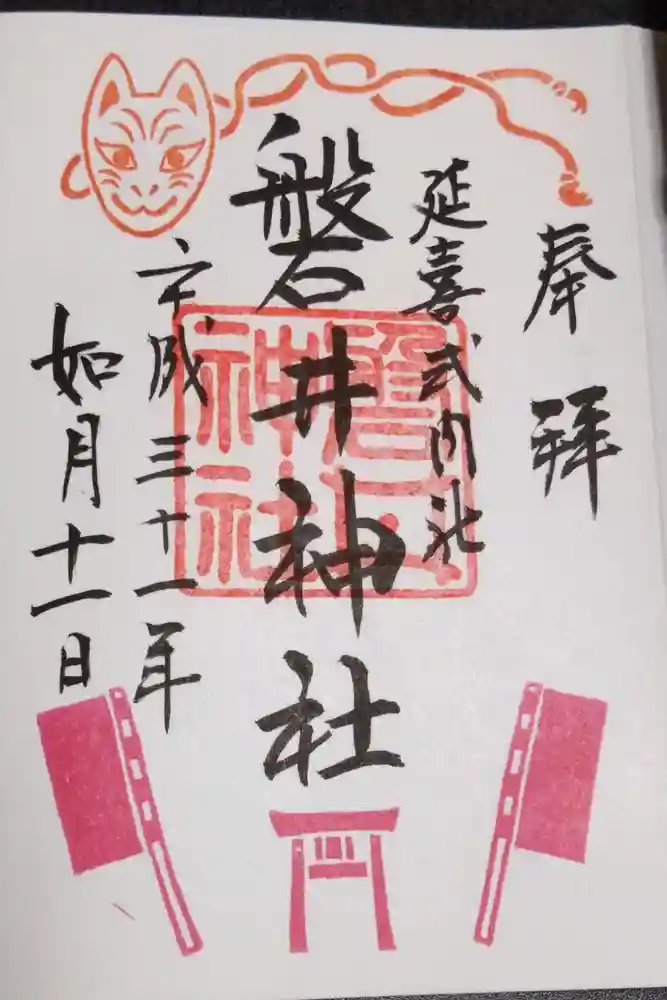 奉拝
延喜式内社
磐井神社
平成三十一年
如月十一日
磐井神社